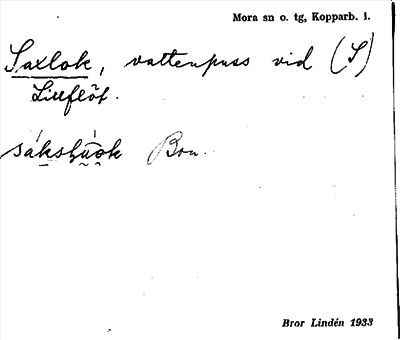 Mora sn o. tg, Kopparb. l.
Saxlok, vattenpuss vid (S)
Lillflöt.
Bon.
Bror Lindén 1933